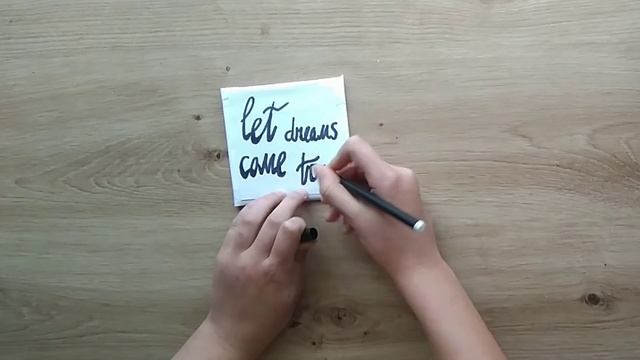 let dreams
come tr